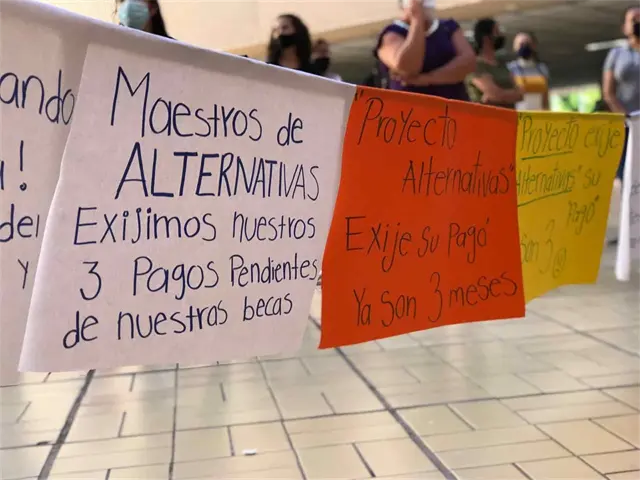 ando
!
del
y
Maestros de
ALTERNATIVAS
Exijimos nuestros
3 Pagos Pendientes
de nuestras becas
"Proyecto
Alternativas"
Exije su Pago
Ya son 3 meses
"Proyecto exije
Alternativas" su
Pago
son 3